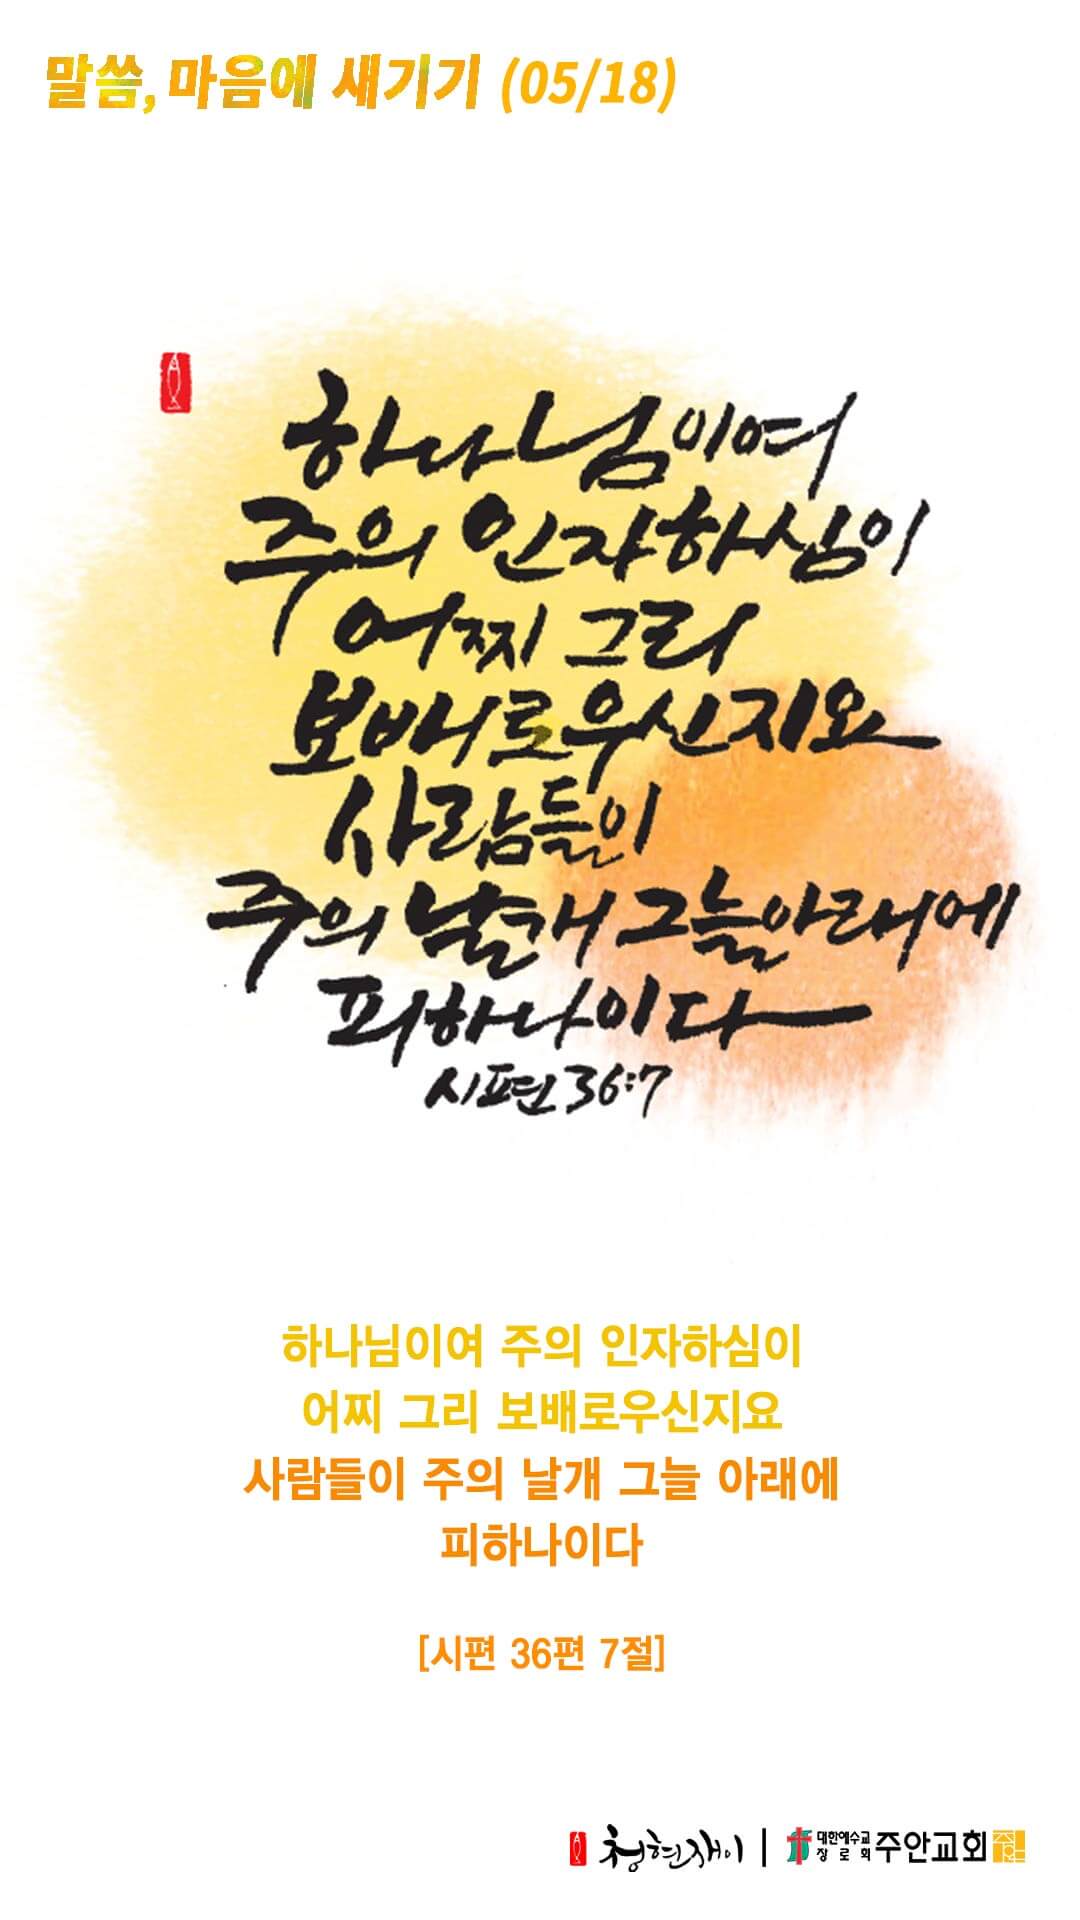 말씀, 마음에 새기기 (05/18)
하나님이여
주의 인자하심이
어찌 그리
보배로우신지요
사람들이
주의 날개 그늘 아래에
피하나이다
시편 36:7
하나님이여 주의 인자하심이
어찌 그리 보배로우신지요
사람들이 주의 날개 그늘 아래에
피하나이다
[시편 36편 7절]
청현재이 | 대한예수교장로회 주안교회 주안